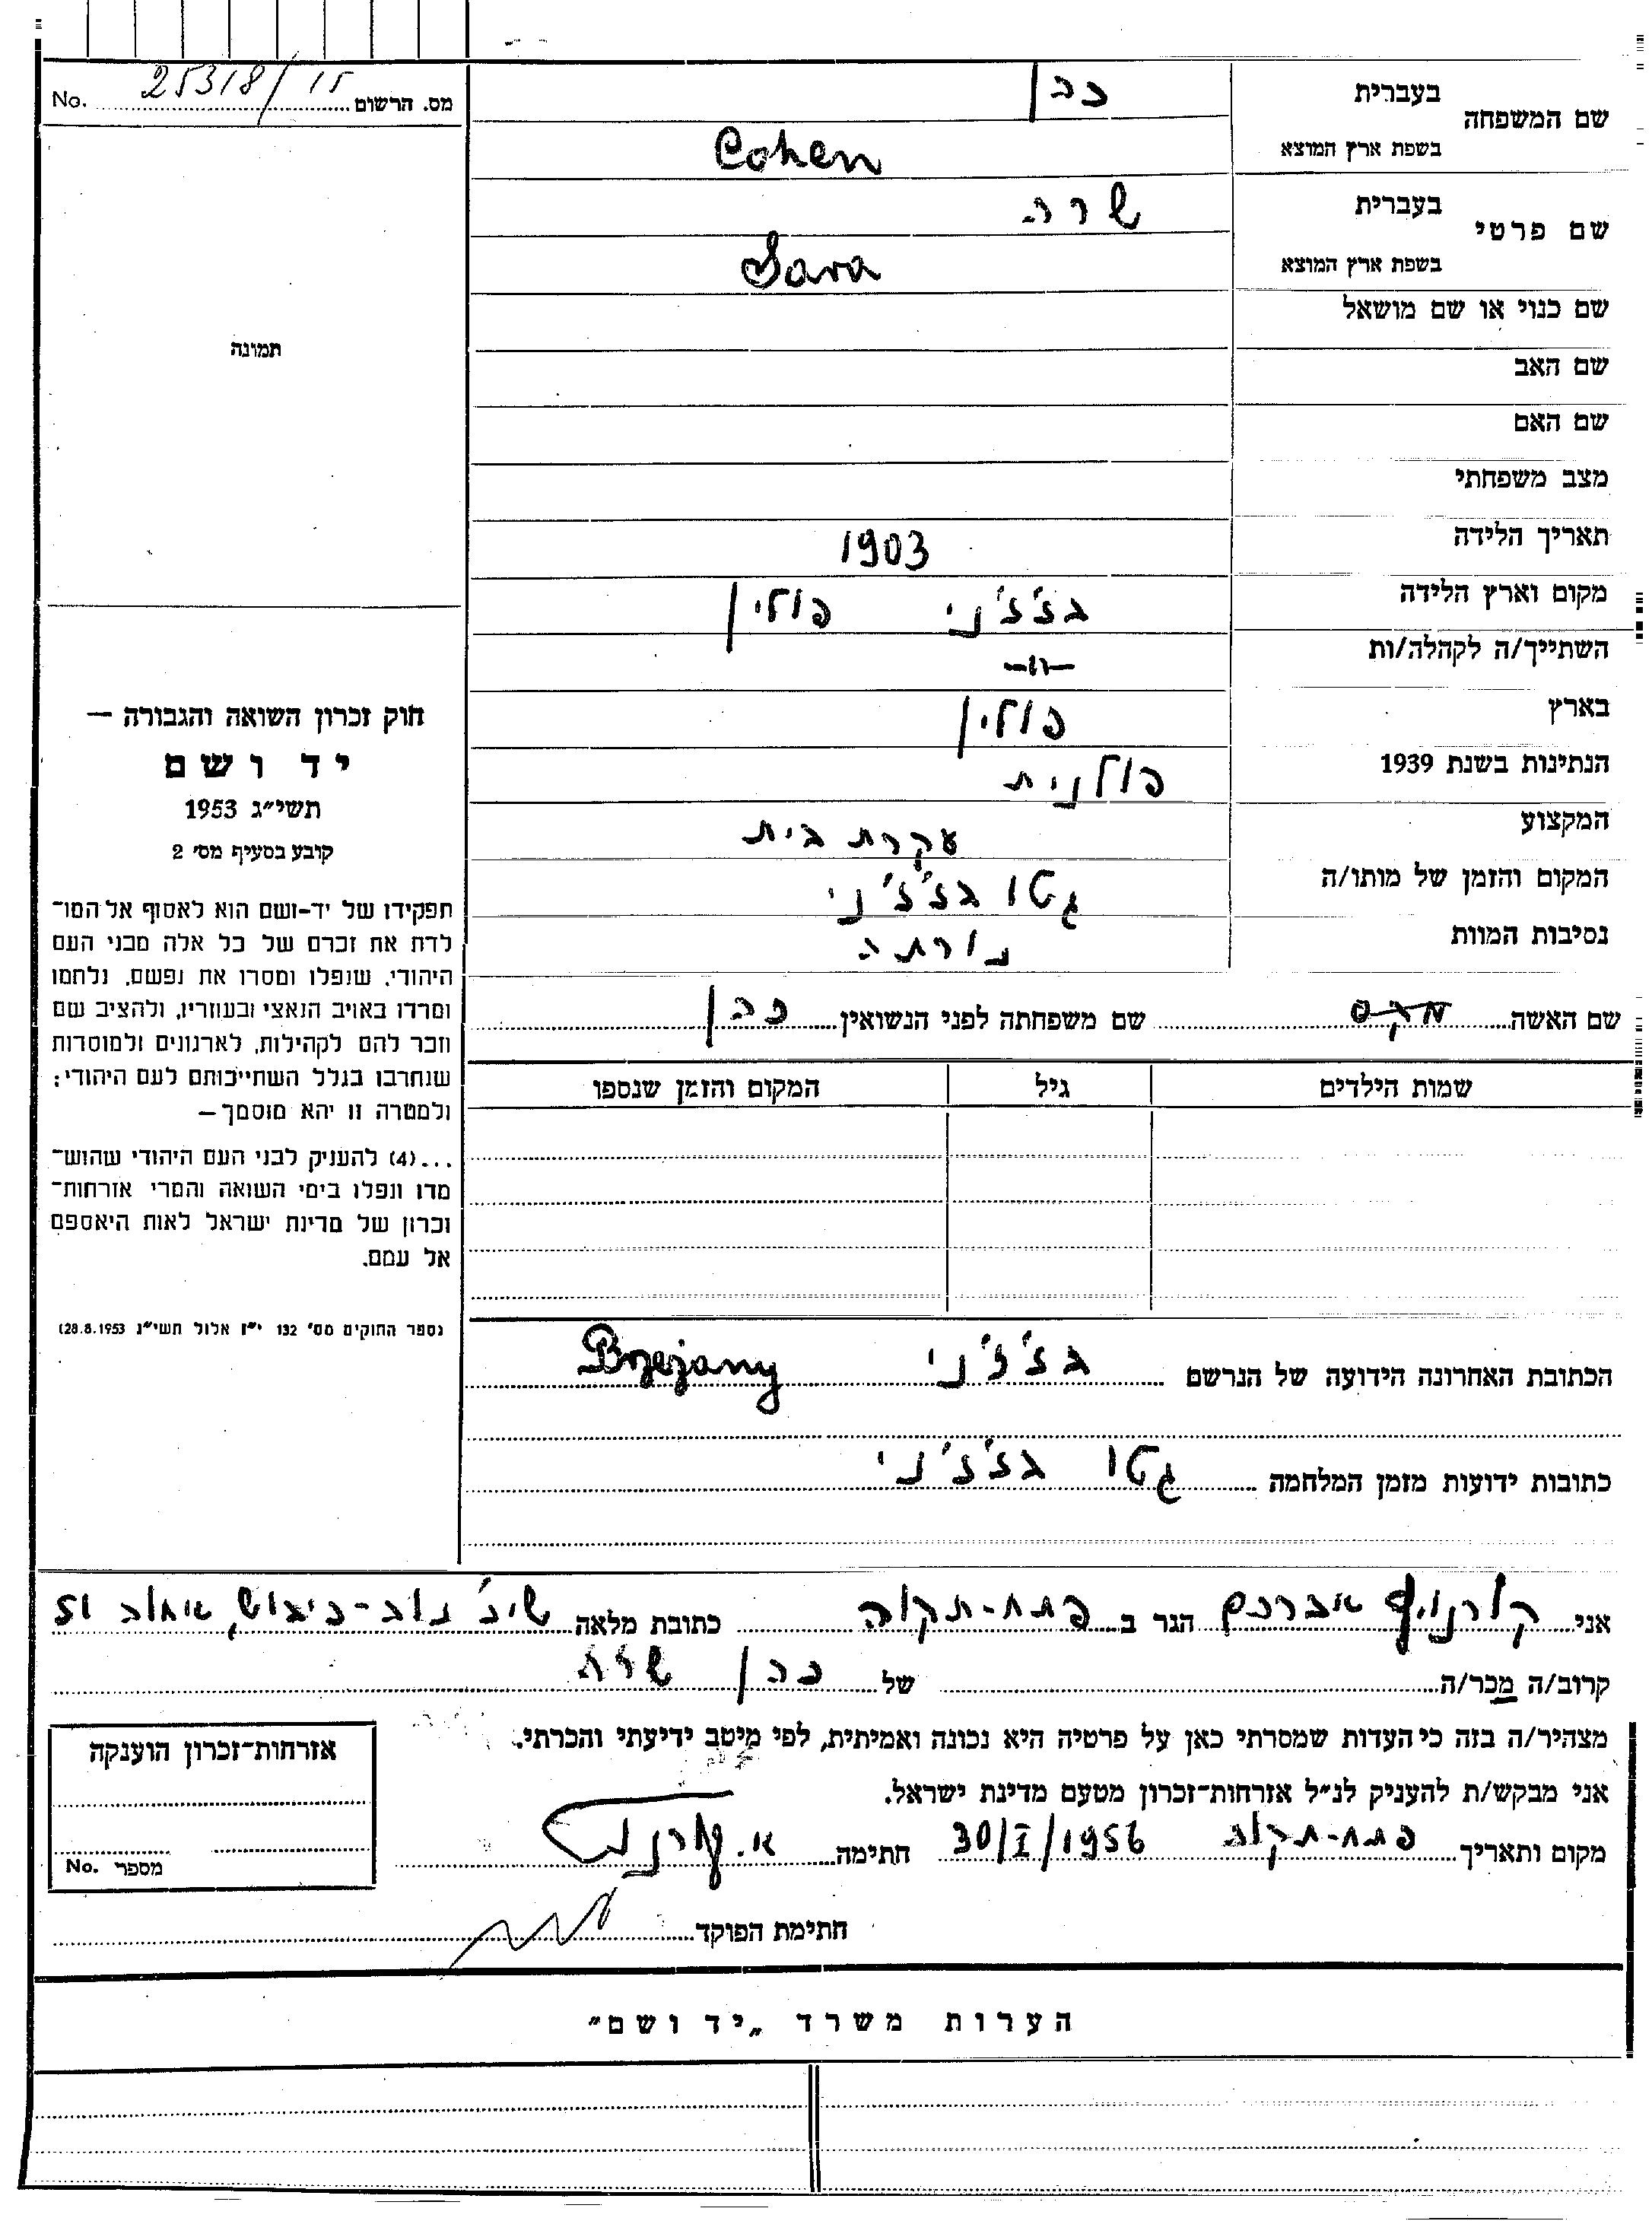 No. 25318/15 מס. הרשום
שם המשפחה
בעברית כהן
בשפת ארץ המוצא Cohen
שם פרטי
בעברית שרה
בשפת ארץ המוצא Sara
שם כנוי או שם מושאל
שם האב
שם האם
מצב משפחתי
תאריך הלידה 1903
מקום וארץ הלידה בז'ז'ני פולין
השתייך/ה לקהלה/ות -"-
בארץ פולין
הנתינות בשנת 1939 פולנית
המקצוע עקרת בית
המקום והזמן של מותו/ה גטו בז'ז'ני
נסיבות המוות נורתה
שם האשה שם משפחתה לפני הנשואין כהן
שמות הילדים גיל המקום והזמן שנספו
תמונה
חוק זכרון השואה והגבורה –
יד ושם
תשי״ג 1953
קובע בסעיף מס׳ 2
תפקידו של יד-ושם הוא לאסוף אל המו־
לדת את זכרם של כל אלה מבני העם
היהודי, שנפלו ומסרו את נפשם, נלחמו
ומרדו באויב הנאצי ובעוזריו, ולהציב שם
וזכר להם לקהילות, לארגונים ולמוסדות
שנחרבו בגלל השתייכותם לעם היהודי;
ולמטרה זו יהא מוסמך–
...(4) להעניק לבני העם היהודי שהוש־
מדו ונפלו בימי השואה והמרי אזרחות־
זכרון של מדינת ישראל לאות היאספם
אל עמם.
(ספר החוקים מס׳ 132 י״ז אלול תשי״ג 28.8.1953)
הכתובת האחרונה הידועה של הנרשם בז'ז'ני Brzejany
כתובות ידועות מזמן המלחמה גטו בז'ז'ני
אני אברהם הגר ב פתח-תקוה כתובת מלאה שיכ'
קרוב/ה מכר/ה של כהן שרה
מצהיר/ה בזה כי העדות שמסרתי כאן על פרטיה היא נכונה ואמיתית, לפי מיטב ידיעתי והכרתי.
אני מבקש/ת להעניק לנ״ל אזרחות־זכרון מטעם מדינת ישראל.
מקום ותאריך פתח-תקוה 30/I/1956 חתימה
חתימת הפוקד
אזרחות־זכרון הוענקה
מספר No.
הערות משרד „יד ושם״